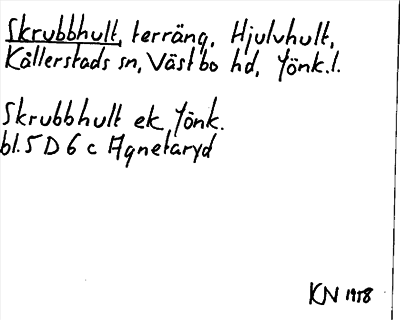 Skrubbhult, terräng, Hjulvhult,
Kållerstads sn, Västbo hd, Jönk.l.
Skrubbhult ek Jönk.
bl. 5 D 6 c Agnetaryd
KN 1958